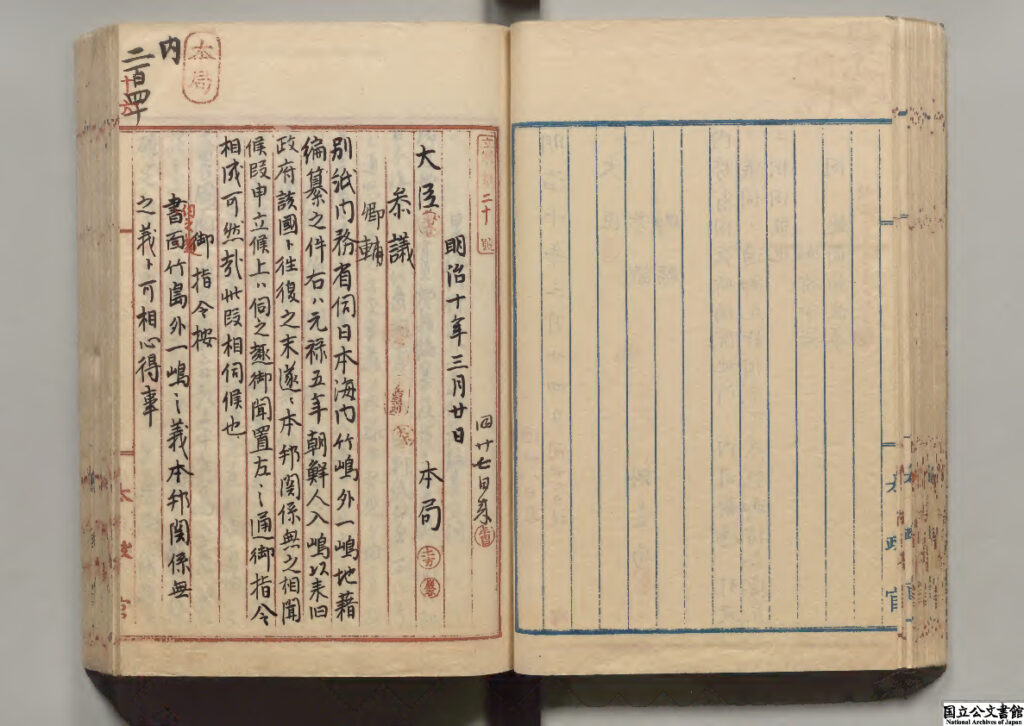 本局
内
二百四
二十
号
明治十年三月廿日
四月廿七日来
大臣
本局
参議
卿輔
別紙内務省伺日本海内竹嶋外一嶋地籍
編纂之件右ハ元禄五年朝鮮人入嶋以来旧
政府該國ト往復之末遂ニ本邦関係無之相聞
候段申立候上ハ伺之趣御聞置左之通御指令
相成可然哉此段相伺候也
御指令按
書面竹島外一嶋之義本邦関係無
伺之趣
之義ト可相心得事
太政官
太政官
国立公文書館
National Archives of Japan